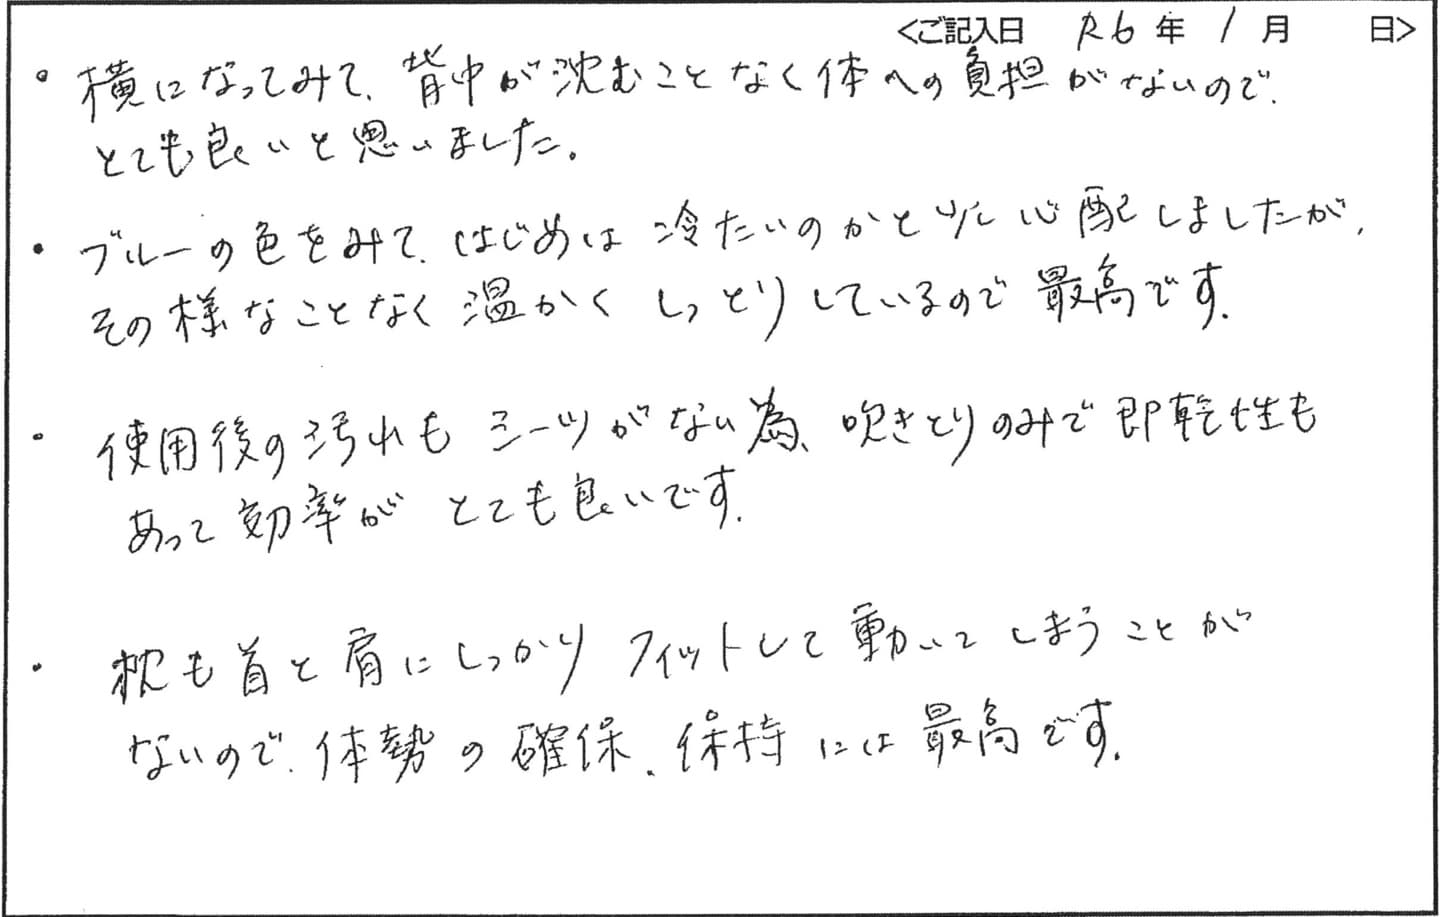 <ご記入日 R6年 1月 日>
・横になってみて、背中が沈むことなく体への負担がないので、
とても良いと思いました。
・ブルーの色をみて、はじめは冷たいのかと少し心配しましたが、
その様なことなく温かくしっとりしているので最高です。
・使用後の汚れもシーツがない為、吹きとりのみで即乾性も
あって効率がとても良いです。
・枕も首と肩にしっかりフィットして動いてしまうことが
ないので、体勢の確保、保持には最高です。